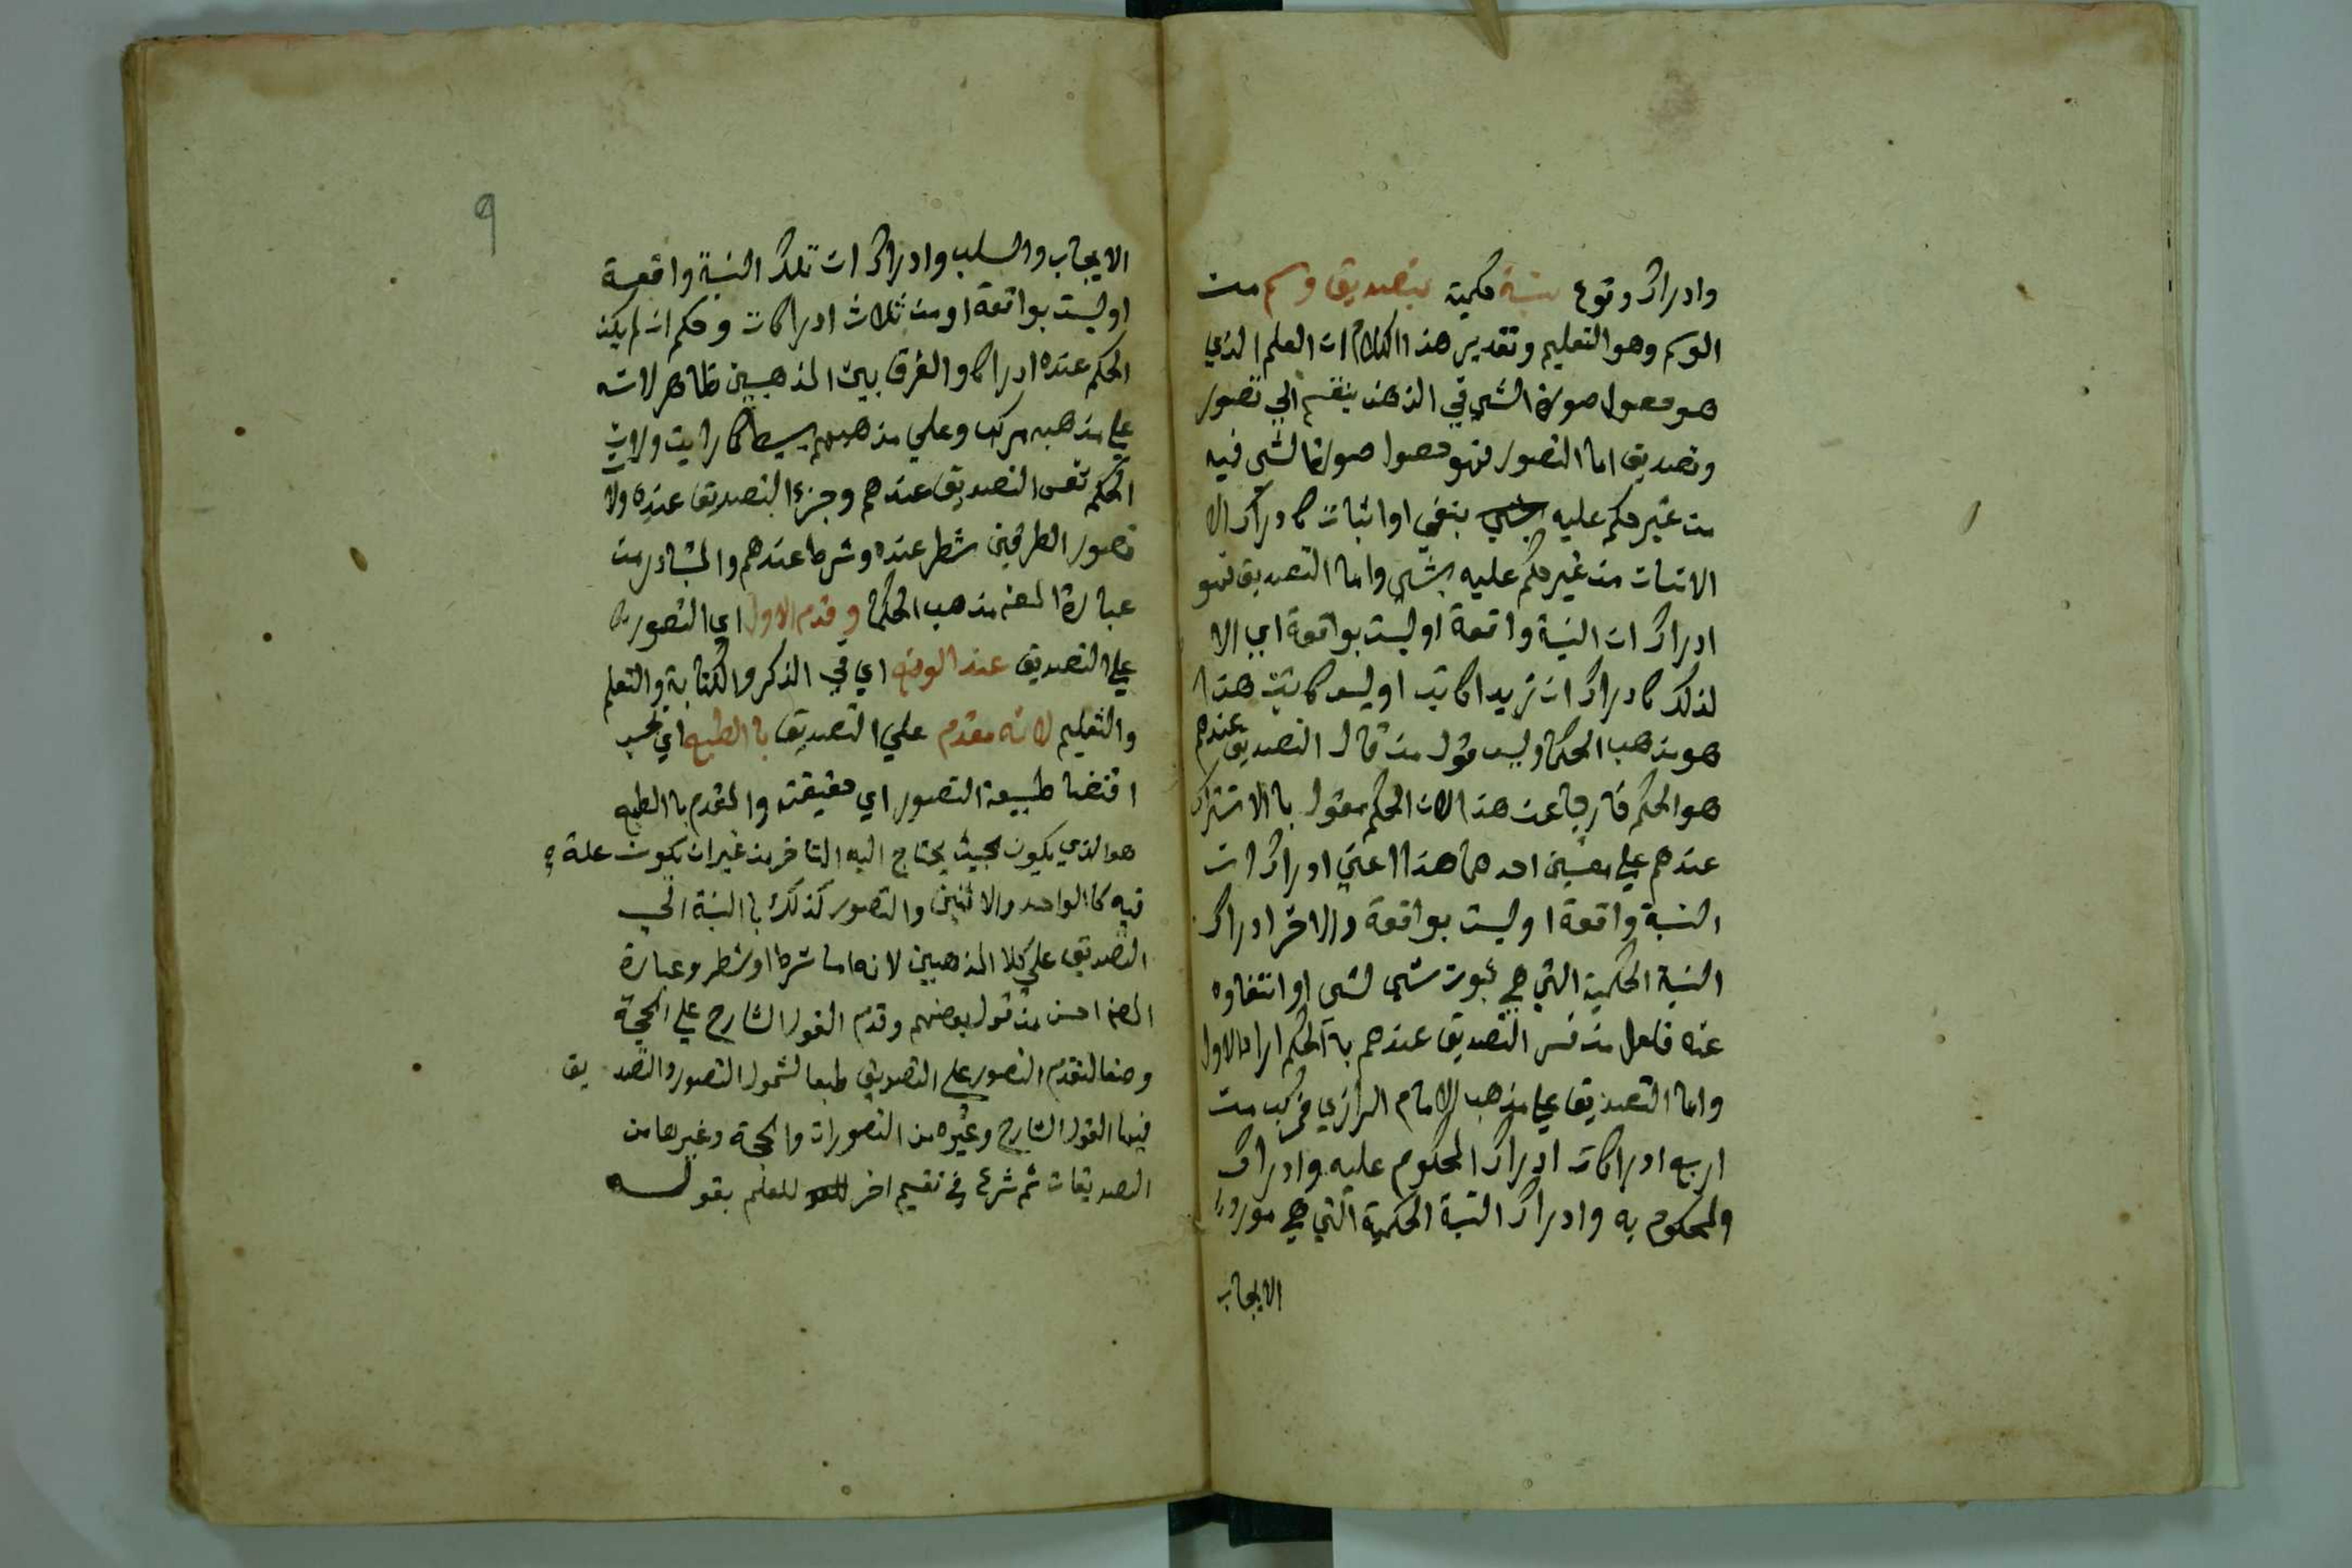 وادراك وقوع نسبة حكمية بتصديق وسم من
الوسم وهو التعليم وتقدير هذا الكلام ان العلم الذي
هو حصول صورة الشي في الذهن ينقسم الي تصور
وتصديق اما التصور فهو حصول صورة الشي فيه
من غير حكم عليه بنفي او اثبات كادراك الا
الانسان من غير حكم عليه بشي واما التصديق فهو
ادراك ان النسبة واقعة او ليست بواقعة اي الا
لذلك كادراك ان زيدا كاتب او ليس كاتب هذا
هو مذهب الحكما وليس قول من قال التصديق عندهم
هو الحكم خارجا عن هذا لان الحكم مقول با الاشتراك
عندهم علي معنيين احدهما هذا اعني ادراك ان
النسبة واقعة او ليست بواقعة والاخر ادراك
النسبة الحكمية التي هي ثبوت شي لشي او انتفاوه
عنه فلعل من فسر التصديق عندهم بالحكم اراد الاول
واما التصديق علي مذهب الامام الرازي فركب من
اربع ادراكات ادراك المحكوم عليه وادراك
والمحكوم به وادراك النسبة الحكمية التي هي مورد
الايجاب
٩
الايجاب والسلب وادراك ان تلك النسبة واقعة
او ليست بواقعة او من ثلاث ادراكات وحكم ان لم يكن
الحكم عنده ادراكا والفرق بين المذهبين ظاهر لانه
علي مذهبه مركب وعلي مذهبهم بسيط كما رايت ولان
الحكم نفس التصديق عندهم وجزء التصديق عنده ولان
تصور الطرفين شطر عنده وشرط عندهم والمتبادر من
عبارة المصنه مذهب الحكما وقدم الاول اي التصور
علي التصديق عند الوضع اي في الذكر والكتابة والتعلم
والتعليم لانه مقدم علي التصديق با الطبع اي بحسب
اقتضا طبيعة التصور اي حقيقته والمقدم با الطبع
هو الذي يكون بحيث يحتاج اليه المتاخر من غير ان يكون علة
فيه كا الواحد والاثنين والتصور كذلك با النسبة الي
التصديق علي كلا المذهبين لانه اما شرط او شطر وعبارة
المصنه احسن من قول بعضهم وقدم القول الشارح علي الحجة
وضعا لتقدم التصور علي التصديق طبعا لشمول التصور والتصديق
فيها القول الشارح وغيره من التصورات والحجة وغيرها من
التصديقات ثم شرع في تقسيم اخر للعلم بقوله